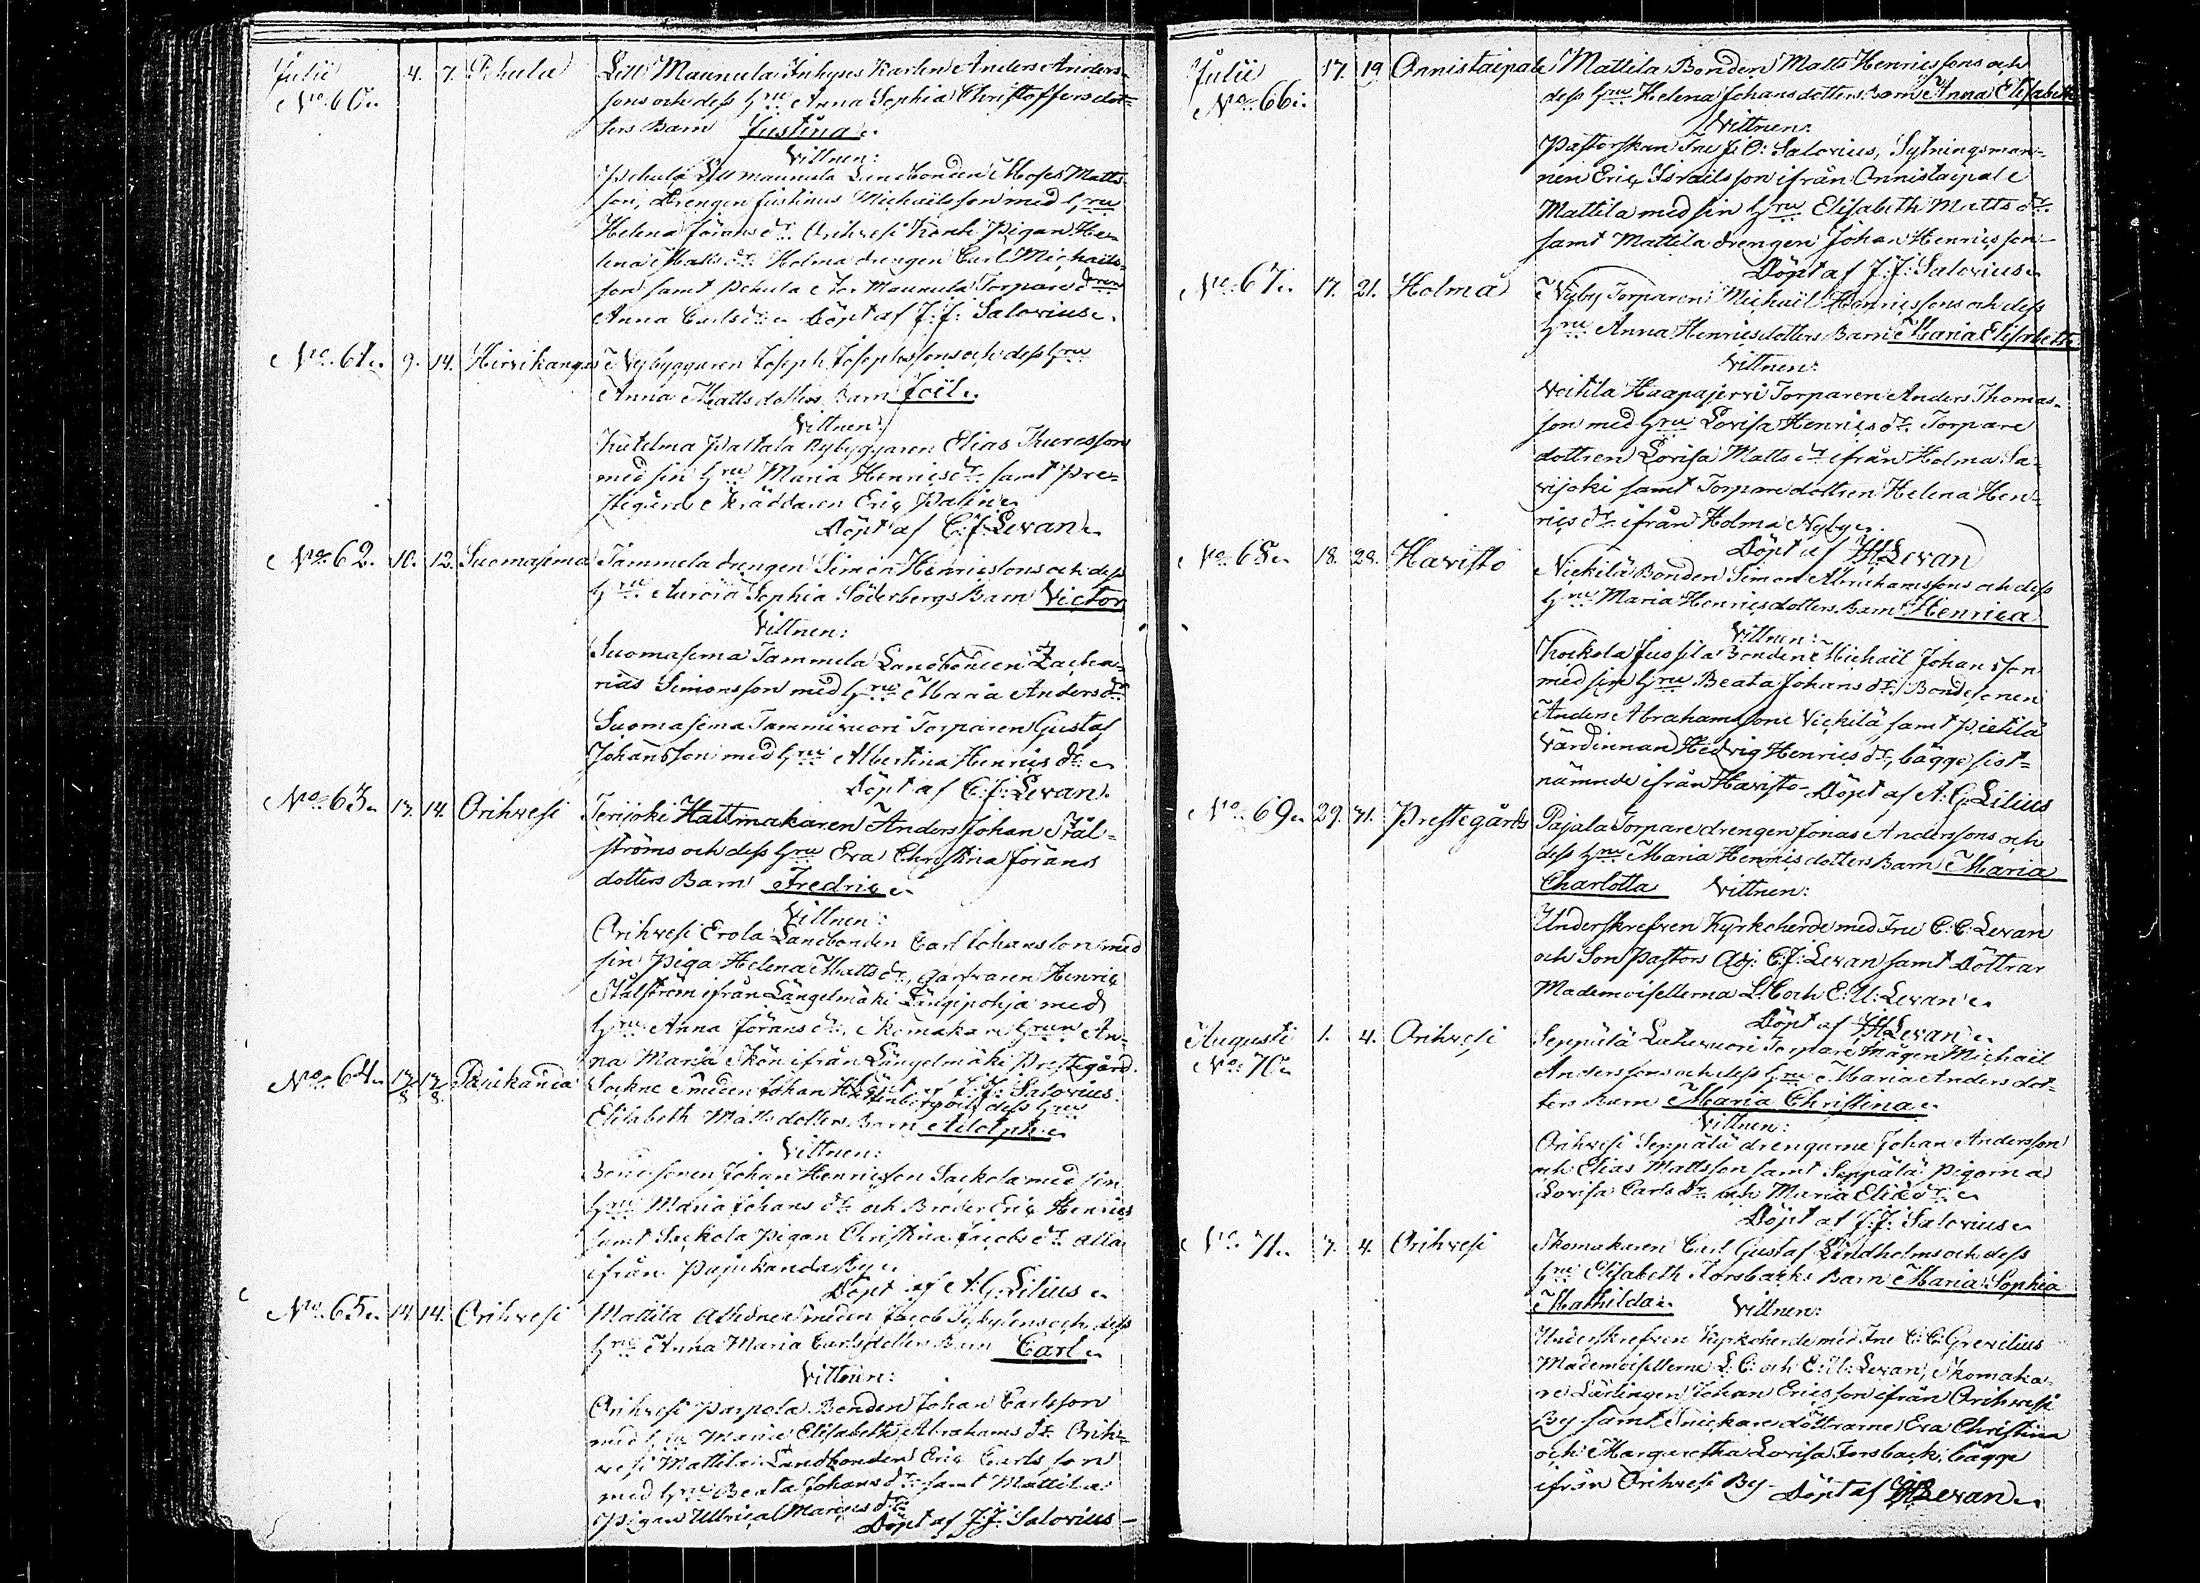 Julii
No. 60. 4. 7. Pehula Lill Maunula Inhyses Karlen Anders Anders-
sons och dess Hru Anna Sophia Christoffersdot-
ters Barn Justina.
Vittnen:
Pehula Lill Maunula Landbonden Moses Matts-
son, Drengen Justinus Michaelsson med Hru
Helena Jörans dr. Orihvesi Pigan He-
lena Matts dr. Holma drengen Carl Michaels-
son samt Pehula Stor Maunula Torpare dren
Anna Carlsdr. Döpt af J. J. Salovius.
No. 61. 9. 14. Hirsikangas Nybyggaren Joseph Josephssons och dess Hru
Anna Mattsdotters Barn Joël.
Vittnen:
Kutelma Paltala Nybyggaren Elias
med sin Hru Maria Henrics dr. samt Pre-
stegårds Skräddaren Eric Palin.
Döpt af C. J. Levan.
No. 62. 10. 12. Suomasima Tammela drengen Simon Henricssons och dess
Hru Aurora Sophia Söderbergs Barn Victor
Vittnen:
Suomasema Tammela Landbonden Zacha-
rias Simonsson med Hru Maria Anders dr
Suomasema Tammivuori Torparen Gustaf
Johansson med Hru Albertina Henrics dr.
Döpt af C. J. Levan.
No. 63. 13. 14. Orihvesi Terijoki Hattmakaren Anders Johan Stål-
ströms och dess Hru Eva Christina Jörans
dotters Barn Fredric.
Vittnen:
Orihvesi Erola Landbonden Carl Johansson med
sin Piga Helena Matts dr, Garfvaren Henric
Stålström ifrån Längelmäki Längipohja med
Hru Anna Jörans dr. Skomakare Hrun An-
na Maria Skön ifrån Längelmäki Prestegård.
Döpt af J. J. Salovius.
No. 64. 13/8 17/8 Pajukanda Sockne Smeden Johan och dess Hru
Elisabeth Mattsdotters Barn Adolph.
Vittnen:
Bondesonen Johan Henricsson Sackola med sin
Hru Maria Johans dr och Broder Eric Henrics
samt Sackola Pigan Christina Jacobs dr. alla
ifrån Pajukanda By.
Döpt af A. G. Lilius.
No. 65. 14. 14. Orihvesi Mattila Smeden Jacob och dess
Hru Anna Maria Carlsdotters Barn Carl.
Vittnen:
Orihvesi Parpola Bonden Johan Carlsson
med Hru Maria Elisabeth Abrahams dr. Orih-
vesi Mattila Landbonden Eric Carlsson
med Hru Beata Johans dr. samt Mattila
Pigan Ulrica dr
Döpt af J. J. Salovius
Julii
No. 66. 17. 19 Onnistaipale Mattila Bonden Matts Henricssons och
dess Hru Helena Johansdotters Barn Anna Elisabeth
Vittnen:
Pastorskan Fru J. O. Salovius, Sytningsman-
nen Eric Israelsson ifrån Onnistaipale
Mattila med sin Hru Elisabeth Matts dr.
samt Mattila drengen Johan Henricsson
Döpt af J. J. Salovius.
No. 67. 17. 21. Holma Nyby Torparen Michaël Henricssons och dess
Hru Anna Henricsdotters Barn Maria Elisabeth
Vittnen:
Voitila Haapajervi Torparen Anders Thomas-
son med Hru Lovisa Henrics dr. Torpare
dottren Lovisa Matts dr ifrån Holma Sa-
rijoki samt Torpare dottren Helena Hen-
rics dr. ifrån Holma Nyby.
Döpt af Levan
No. 68. 18. 28. Havisto Nickilä Bonden Simon Abrahamssons och dess
Hru Maria Henricsdotters Barn Henrica
Vittnen:
Kockola Jussila Bonden Michaël Johansson
med sin Hru Beata Johans dr, Bondesonen
Anders Abrahamsson Nickilä, samt Pietilä
Värdinnan Hedvig Henrics dr, bägge sist-
nämnde ifrån Havisto. Döpt af A. G. Lilius
No. 69. 29. 31. Prestegårds Pajala Torpare drengen Jonas Anderssons och
dess Hru Maria Henricsdotters Barn Maria
Charlotta Vittnen:
Underskrefven Kyrkoherde med Fru C. C. Levan
och Son Pastors Adj. C. J. Levan samt Döttrar
Mademoisellerna L. C. och E. U. Levan.
Döpt af Levan.
Augusti
No. 70. 1. 4. Orihvesi Seppälä Torpare Mågen Michaël
Anderssons och dess Hru Maria Andersdot-
ters Barn Maria Christina.
Vittnen:
Orihvesi Seppälä drengarne Johan Andersson
och Elias Mattsson samt Seppälä Pigorna
Lovisa Carls dr. och Maria Elias dr.
Döpt af J. J. Salovius.
No. 71. 3. 4. Orihvesi Skomakaren Carl Gustaf Lindholms och dess
Hru Elisabeth Forsbacks Barn Maria Sophia
Mathilda. Vittnen:
Underskrefven Kyrkoherde med Fru C. C. Grevilius
Mademoisellerne L. C. och E. U. Levan, Skomaka-
re Lärlingen Johan Ericsson ifrån Orihvesi
By samt Snickare döttrarne Eva Christina
och Margaretha Lovisa Forsback, bägge
ifrån Orihvesi By. Döpt af Levan.